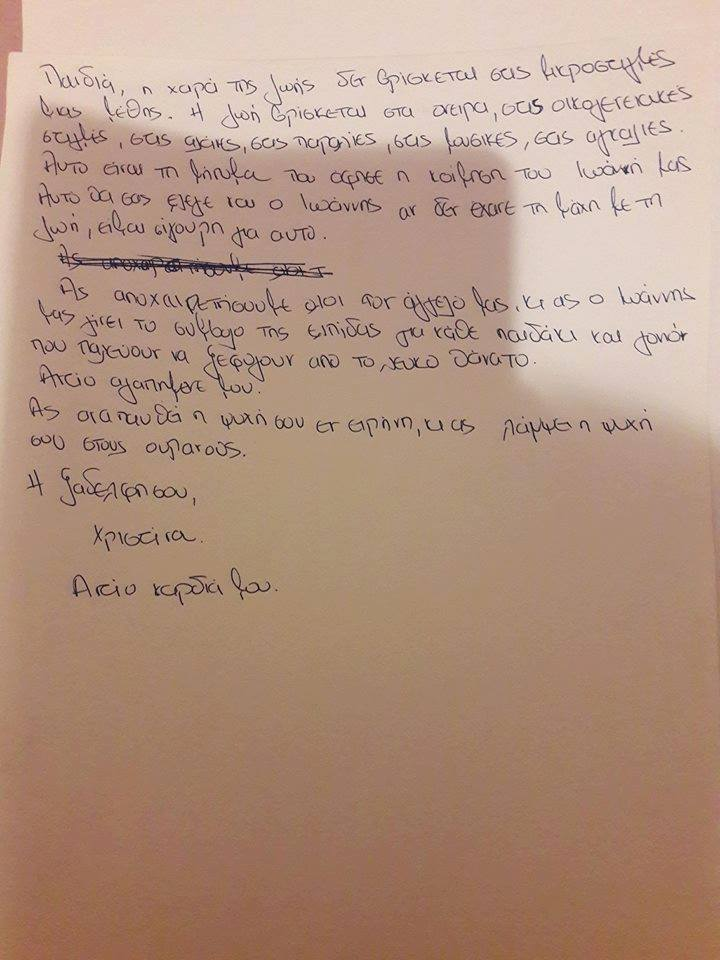 Παιδιά, η χαρά της ζωής δεν βρίσκεται στις μικροστιγμές
μιας μέθης. Η ζωή βρίσκεται στα όνειρα, στις οικογενειακές
στιγμές, στις αγάπες, στις παραλίες, στις μουσικές, στις αγκαλιές.
Αυτό είναι τη μήνυμα που άφησε η κοίμηση του Ιωάννη μας
Αυτό θα σας έλεγε και ο Ιωάννης αν δεν έχανε τη μάχη με τη
ζωή, είμαι σίγουρη για αυτό.
Ας αποχαιρετήσουμε όλοι τον άγγελό μας, κι ας ο Ιωάννης
μας γίνει το σύμβολο της ελπίδας για κάθε παιδάκι και γονιόν
που παλεύουν να ξεφύγουν από το λευκό θάνατο.
Αντίο αγαπημένε μου.
Ας αναπαυθεί η ψυχή σου εν ειρήνη, κι ας λάμψει η ψυχή
σου στους ουρανούς.
Η ξαδέλφη σου,
Χριστίνα.
Αντίο καρδιά μου.